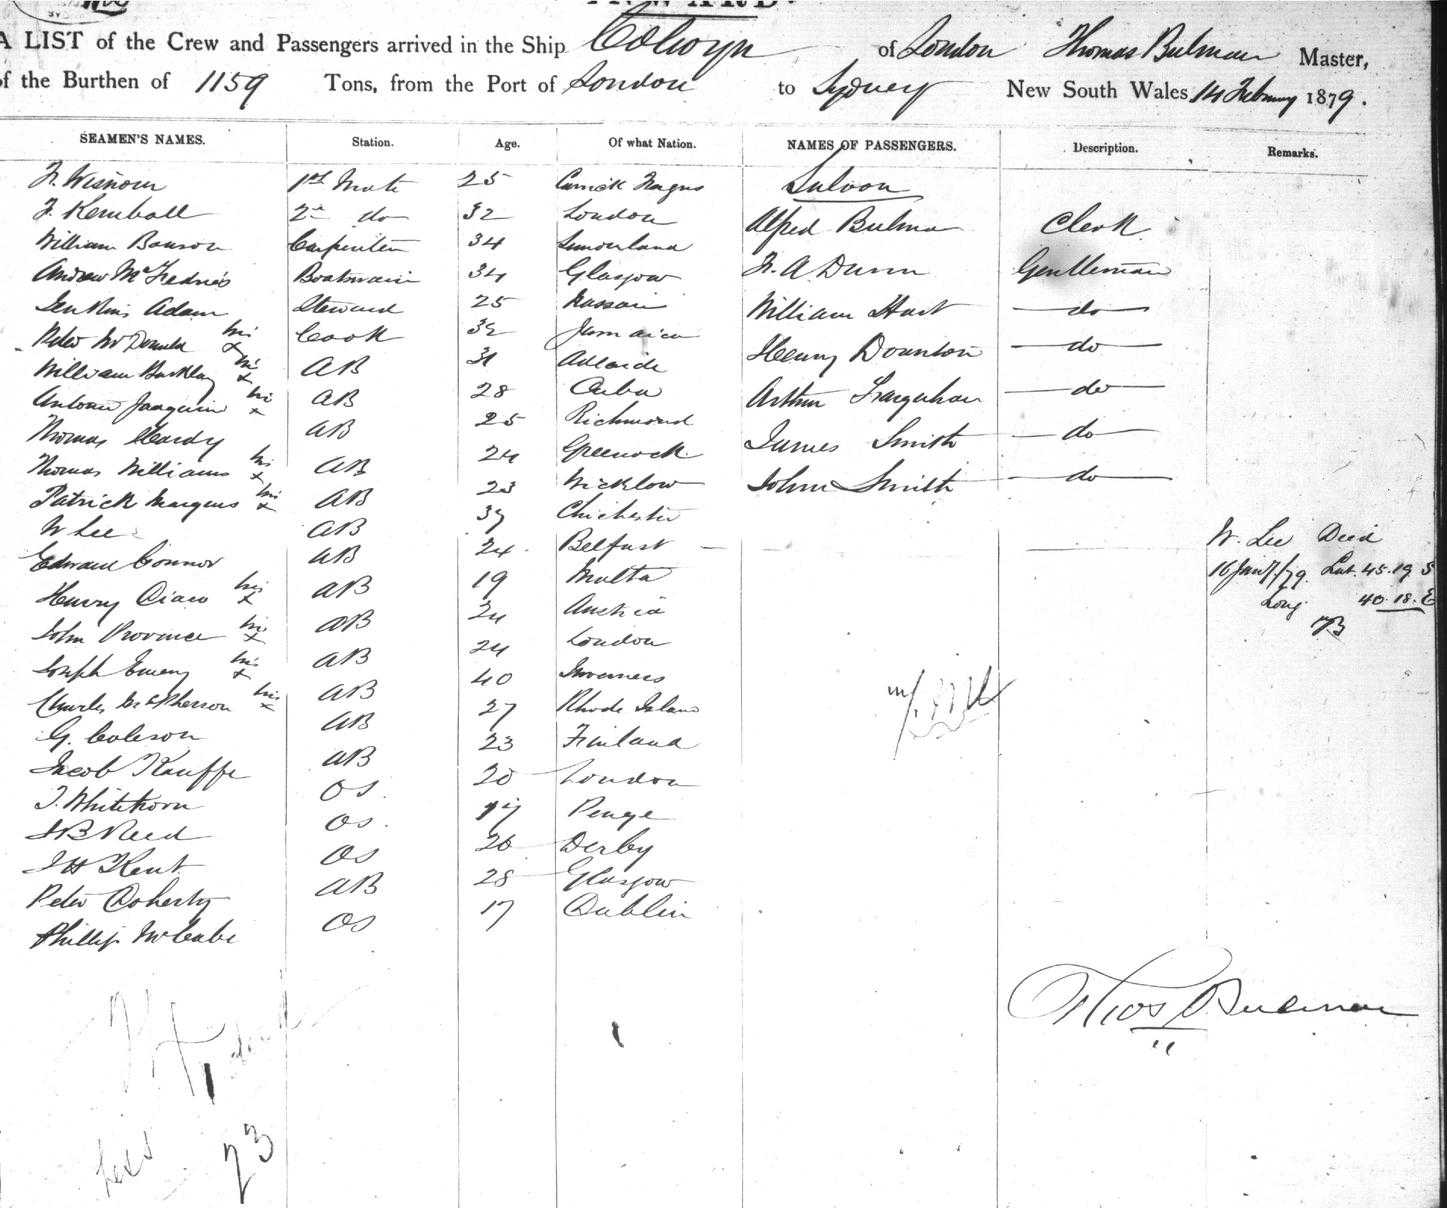 INWARD.
A LIST of the Crew and Passengers arrived in the Ship Colwyn of London Thomas Bulman Master,
of the Burthen of 1159 Tons, from the Port of London to Sydney New South Wales 14 February 1879.
SEAMEN'S NAMES. Station. Age. Of what Nation. NAMES OF PASSENGERS. Description. Remarks.
1st Mate 25 Carrick Fergus Saloon
F. Kemball 2nd do 32 London Alfred Bulman Clerk
William Bonson Carpenter 34 Sunderland F. A. Dunn Gentleman
Andrew McFedries Boatswain 34 Glasgow William Hart do
Jenkins Adam Steward 25 Nassau Henry Dounton do
Peter McDonald his x Cook 32 Jamaica Arthur Farquhar do
William Barklay his x AB 31 Adelaide James Smith do
Antonio Joaquin his x AB 28 Cuba John Smith do
Thomas Hardy AB 25 Richmond
Thomas Williams his x AB 24 Greenock
Patrick Mangus his x AB 23 Wicklow
W Lee AB 37 Chichester W. Lee Died
Edward Connor AB 24 Belfast 16 Jany/79 Lat. 45.19 S
Henry Ciaco his x AB 19 Malta Long 40.18. E
John Province his x AB 24 Austria TB
Joseph Emery his x AB 24 London
Charles McPherson his x AB 40 Inverness
G. Coleson AB 27 Rhode Island
Jacob Kauffe AB 23 Finland
T. Whitehorn OS 20 London
J B Reed OS. 17 Penge
J H Kent OS 20 Derby
Peter Doherty AB 28 Glasgow
Phillip McCabe OS 17 Dublin
Thos Bulman
less
23